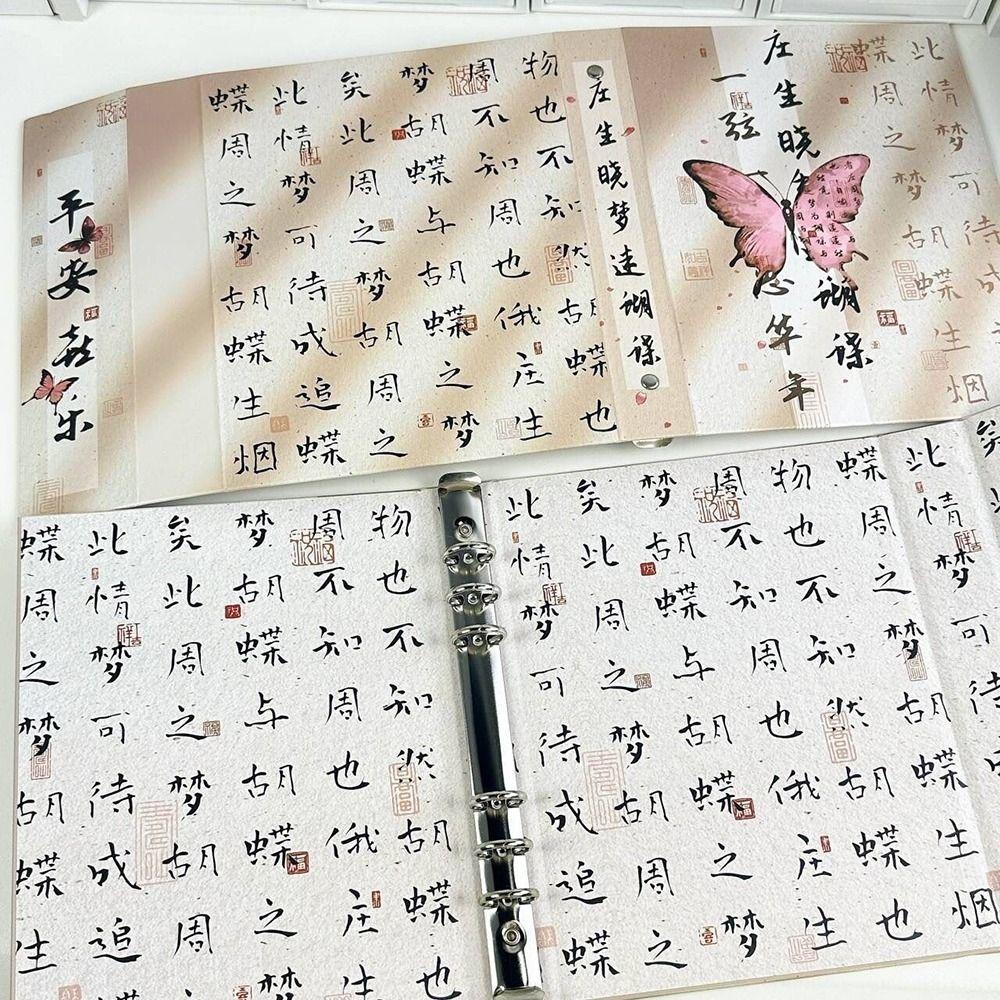 平安喜乐
物也不知然胡蝶也
周不知周也俄庄生
梦胡蝶与胡蝶之梦
矣此周之梦胡周之
此情梦可待成追蝶
蝶周之梦胡蝶生烟
庄生晓梦迷蝴蝶
庄生晓
蝴蝶
一弦
思华年
此情梦可待成
蝶周之梦胡蝶生烟
物也不知然胡蝶也
周不知周也俄庄生
梦胡蝶与胡蝶之梦
矣此周之梦胡周
此情梦可待成追蝶
蝶周之梦胡蝶生
矣
此情梦可待
蝶周之梦胡蝶生烟
物也不知然胡蝶也
周不知周也俄庄生
梦胡蝶与胡蝶之梦
矣此周之梦胡周之
此情梦可待成追蝶